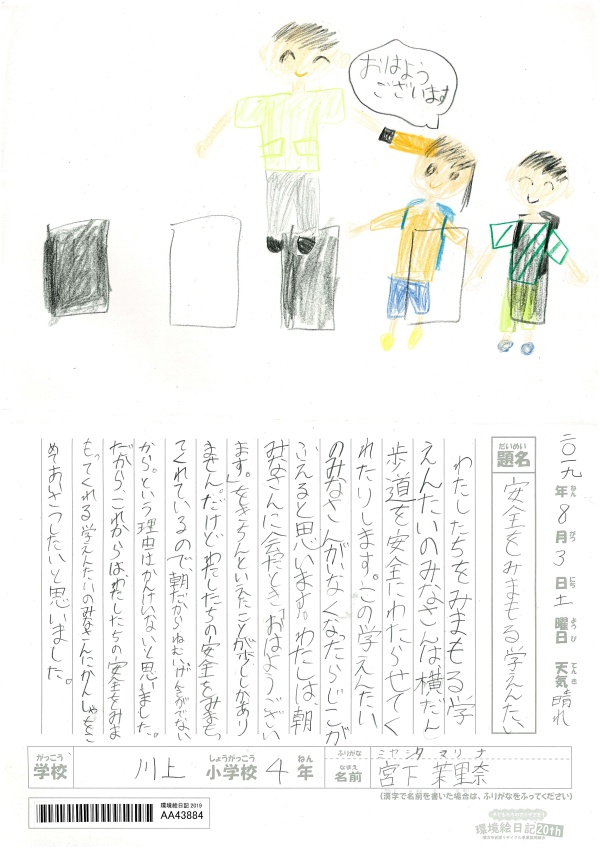 おはよう
ございます
二〇一九年8月3日土曜日 天気晴れ
ねん がつ にち ようび てんき
だいめい
題名 安全をみまもる学えんたい
わたしたちをみまもる学
えんたいのみなさんは横だん
歩道を安全にわたらせてく
れたりします。この学えんたい
のみなさんがなくなったらじこが
ふえると思います。わたしは、朝
みなさんに会たとき「おはようござい
ます。」をきちんといえたことが少しかあり
ません。だけどわたしたちの安全をみまも
てくれているので、朝だからねむい、げん気がでない
から。という理由はかんけいないと思いました。
だから、これからは、わたしたちの安全をみま
もってくれる学えんたいのみなさんにかんしゃをこ
めてあいさつしたいと思いました。
がっこう しょうがっこう ねん
学校 川上 小学校 4年
ふりがな ミヤシタ マリナ
なまえ
名前 宮下 茉里奈
(漢字で名前を書いた場合は、ふりがなをふってください)
環境絵日記2019
AA43884
環境絵日記20th